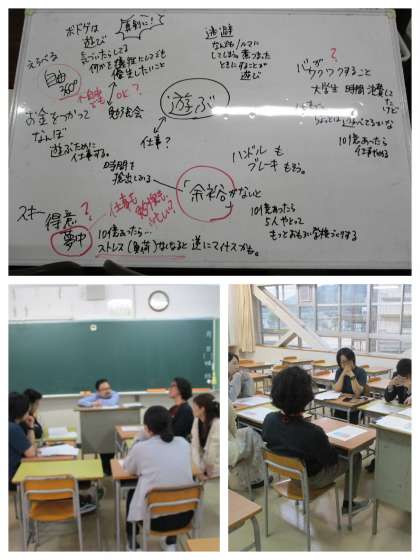 ボドゲは
遊び
真剣に!
気づいたらしてる
何かを犠牲にしても
優先したいこと
逃避
なんでもノルマに
してしまう。煮つまった
ときにすることが
遊び
えらべる
自由
不自由でも
OK?
勉強会
遊ぶ
?
ワクワクすること
大学生 時間 浪費してた
けど
お金をつかって
なんぼ
遊ぶために
仕事する。
仕事?
10億あったら
仕事やめる
ハンドル も
ブレーキ もある。
時間を
捻出してみる
「余裕」がないと
スキー
得意
?
夢中
仕事も
勉強も
忙しい?
10億あったら…
ストレス(負荷)なくなると 逆にマイナスかも。
10億あったら
5人やとって
もっとおもしろい学校づくりする